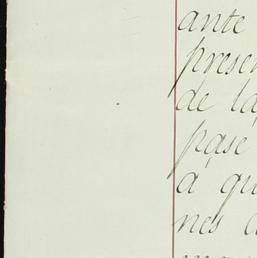 ante
presen
de la
pase
á qu
nes d